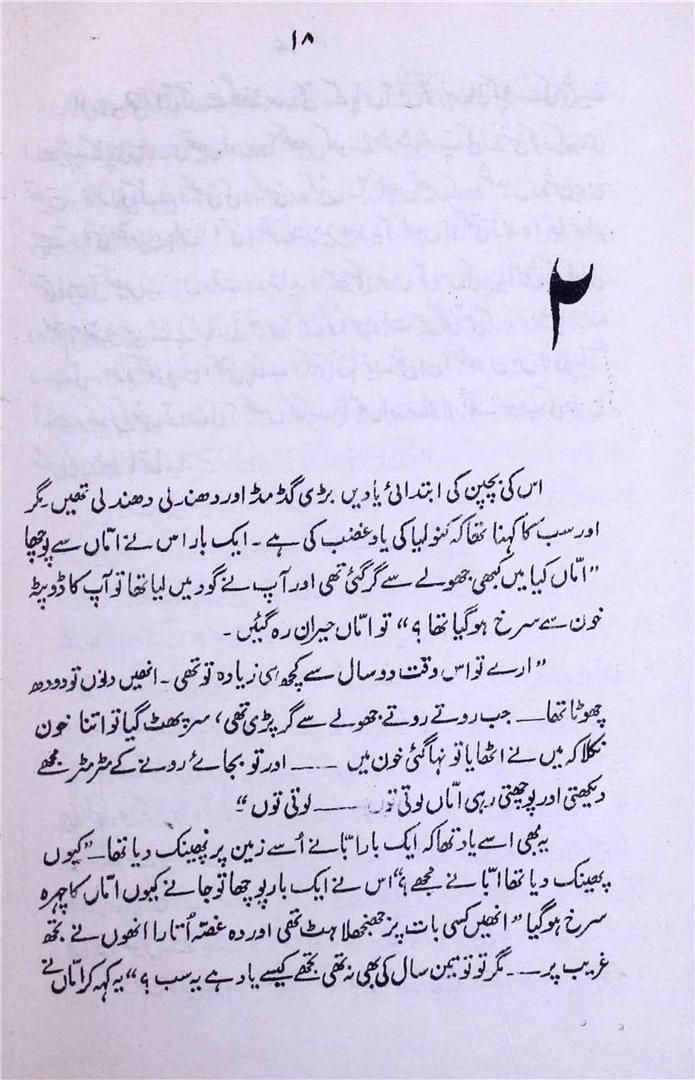 ۱۸
۲
اس کی بچپن کی ابتدائی یادیں بڑی گڈمڈ اور دھندلی دھندلی تھیں مگر
اور سب کا کہنا تھا کہ کنولیا کی یاد غضب کی ہے ۔ ایک بار اس نے امّاں سے پوچھا
”امّاں کیا میں کبھی جھولے سے گر گئی تھی اور آپ نے گود میں لیا تھا تو آپ کا ڈوپٹہ
خون سے سرخ ہو گیا تھا ؟“ تو امّاں حیران رہ گئیں ۔
”ارے تو اس وقت دو سال سے کچھ ہی زیادہ تو تھی ۔ انھیں دلوں تو دودھ
چھوٹا تھا ــــ جب روتے روتے جھولے سے گر پڑی تھی، سر پھٹ گیا تو اتنا خون
نکلا کہ میں نے اٹھایا تو نہا گئی خون میں ــــ اور تو بجائے رونے کے مٹر مٹر مجھے
دیکھتی اور پوچھتی رہی امّاں لوتی توں ــــ لوتی توں“
یہ بھی اسے یاد تھا کہ ایک بار ابّا نے اُسے زمین پر پھینک دیا تھا ــ ”کیوں
پھینک دیا تھا ابّا نے مجھے ؟“ اس نے ایک بار پوچھا تو جانے کیوں امّاں کا چہرہ
سرخ ہو گیا ”انھیں کسی بات پر جھنجھلاہٹ تھی اور وہ غصّہ اُتارا انھوں نے تجھ
غریب پر ــــ مگر تو تو تین سال کی بھی نہ تھی تجھے کیسے یاد ہے یہ سب ؟“ یہ کہہ کر امّاں نے